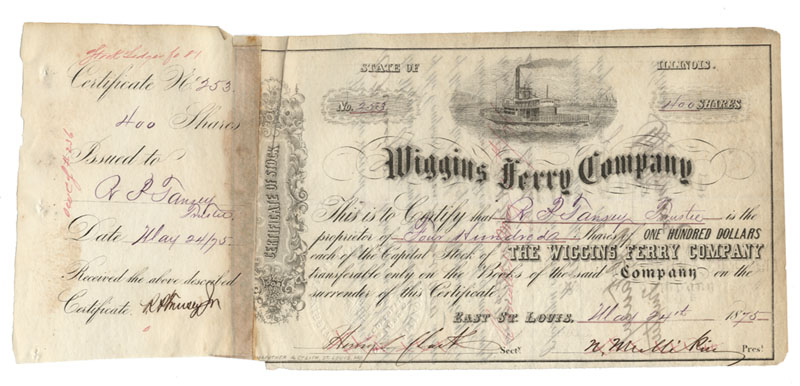 Certificate No. 253
400 Shares
Issued to
R P Tansey
Trustee
Date May 24/75
Received the above described
Certificate.
STATE OF ILLINOIS.
No. 253 400 SHARES
Wiggins Ferry Company
CERTIFICATE OF STOCK
This is to Certify that R P Tansey Trustee is the
proprietor of Four Hundred Shares of ONE HUNDRED DOLLARS
each of the Capital Stock of THE WIGGINS FERRY COMPANY
transferable only on the Books of the said Company on the
surrender of this Certificate
EAST ST. LOUIS, May 24th 1875
Henry L Clark Sect. N. Mullikin Prest